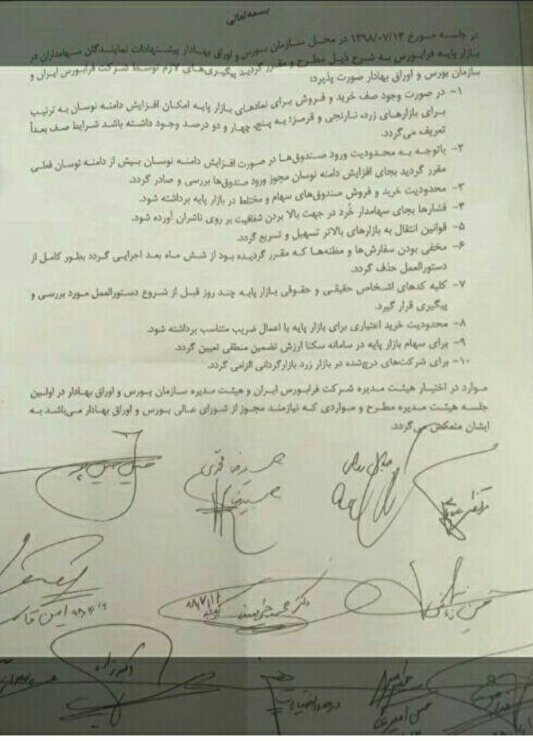 بسمه تعالی
در جلسه مورخ ۱۳۹۸/۰۷/۱۴ در محل سازمان بورس و اوراق بهادار پیشنهادات نمایندگان سهامداران در
بازار پایه فرابورس به شرح ذیل مطرح و مقرر گردید پیگیری‌های لازم توسط شرکت فرابورس ایران و
سازمان بورس و اوراق بهادار صورت پذیرد:
۱- در صورت وجود صف خرید و فروش برای نمادهای بازار پایه امکان افزایش دامنه نوسان به ترتیب
برای بازارهای زرد، نارنجی و قرمز؛ به پنج، چهار و دو درصد وجود داشته باشد شرایط صف بعداً
تعریف می‌گردد.
۲- باتوجه به محدودیت ورود صندوق‌ها در صورت افزایش دامنه نوسان بیش از دامنه نوسان فعلی
مقرر گردید بجای افزایش دامنه نوسان مجوز ورود صندوق‌ها بررسی و صادر گردد.
۳- محدودیت خرید و فروش صندوق‌های سهام و مختلط در بازار پایه برداشته شود.
۴- فشارها بجای سهامدار خُرد در جهت بالا بردن شفافیت بر روی ناشران آورده شود.
۵- قوانین انتقال به بازارهای بالاتر تسهیل و تسریع گردد.
۶- مخفی بودن سفارش‌ها و مظنه‌ها که مقرر گردیده بود از شش ماه بعد اجرایی گردد بطور کامل از
دستورالعمل حذف گردد.
۷- کلیه کدهای اشخاص حقیقی و حقوقی بازار پایه چند روز قبل از شروع دستورالعمل مورد بررسی و
پیگیری قرار گیرد.
۸- محدودیت خرید اعتباری برای بازار پایه با اعمال ضریب متناسب برداشته شود.
۹- برای سهام بازار پایه در سامانه سکنا ارزش تضمین منطقی تعیین گردد.
۱۰- برای شرکت‌های درج‌شده در بازار زرد بازارگردانی الزامی گردد.
موارد در اختیار هیئت مدیره شرکت فرابورس ایران و هیئت مدیره سازمان بورس و اوراق بهادار در اولین
جلسه هیئت مدیره مطرح و مواردی که نیازمند مجوز از شورای عالی بورس و اوراق بهادار می‌باشد به
ایشان منعکس می‌گردد.